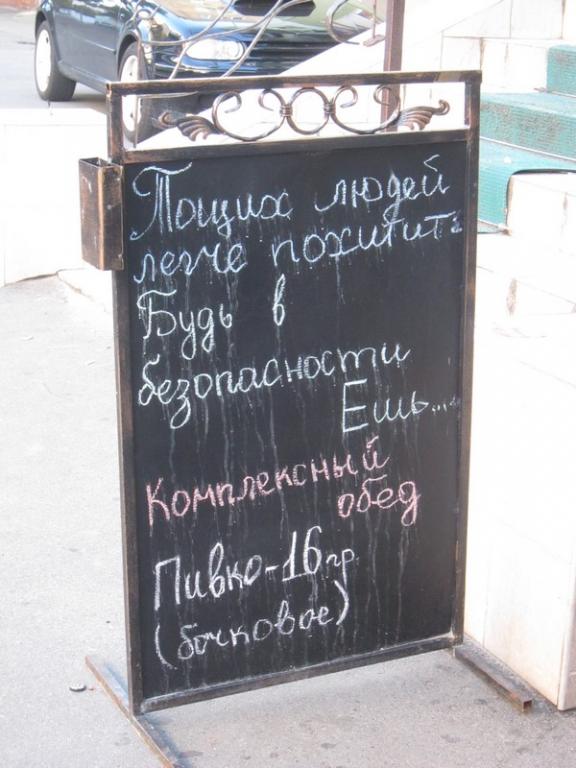 Тощих людей
легче похитить
Будь в
безопасности
Ешь...
Комплексный
обед
Пивко-16гр
(бочковое)